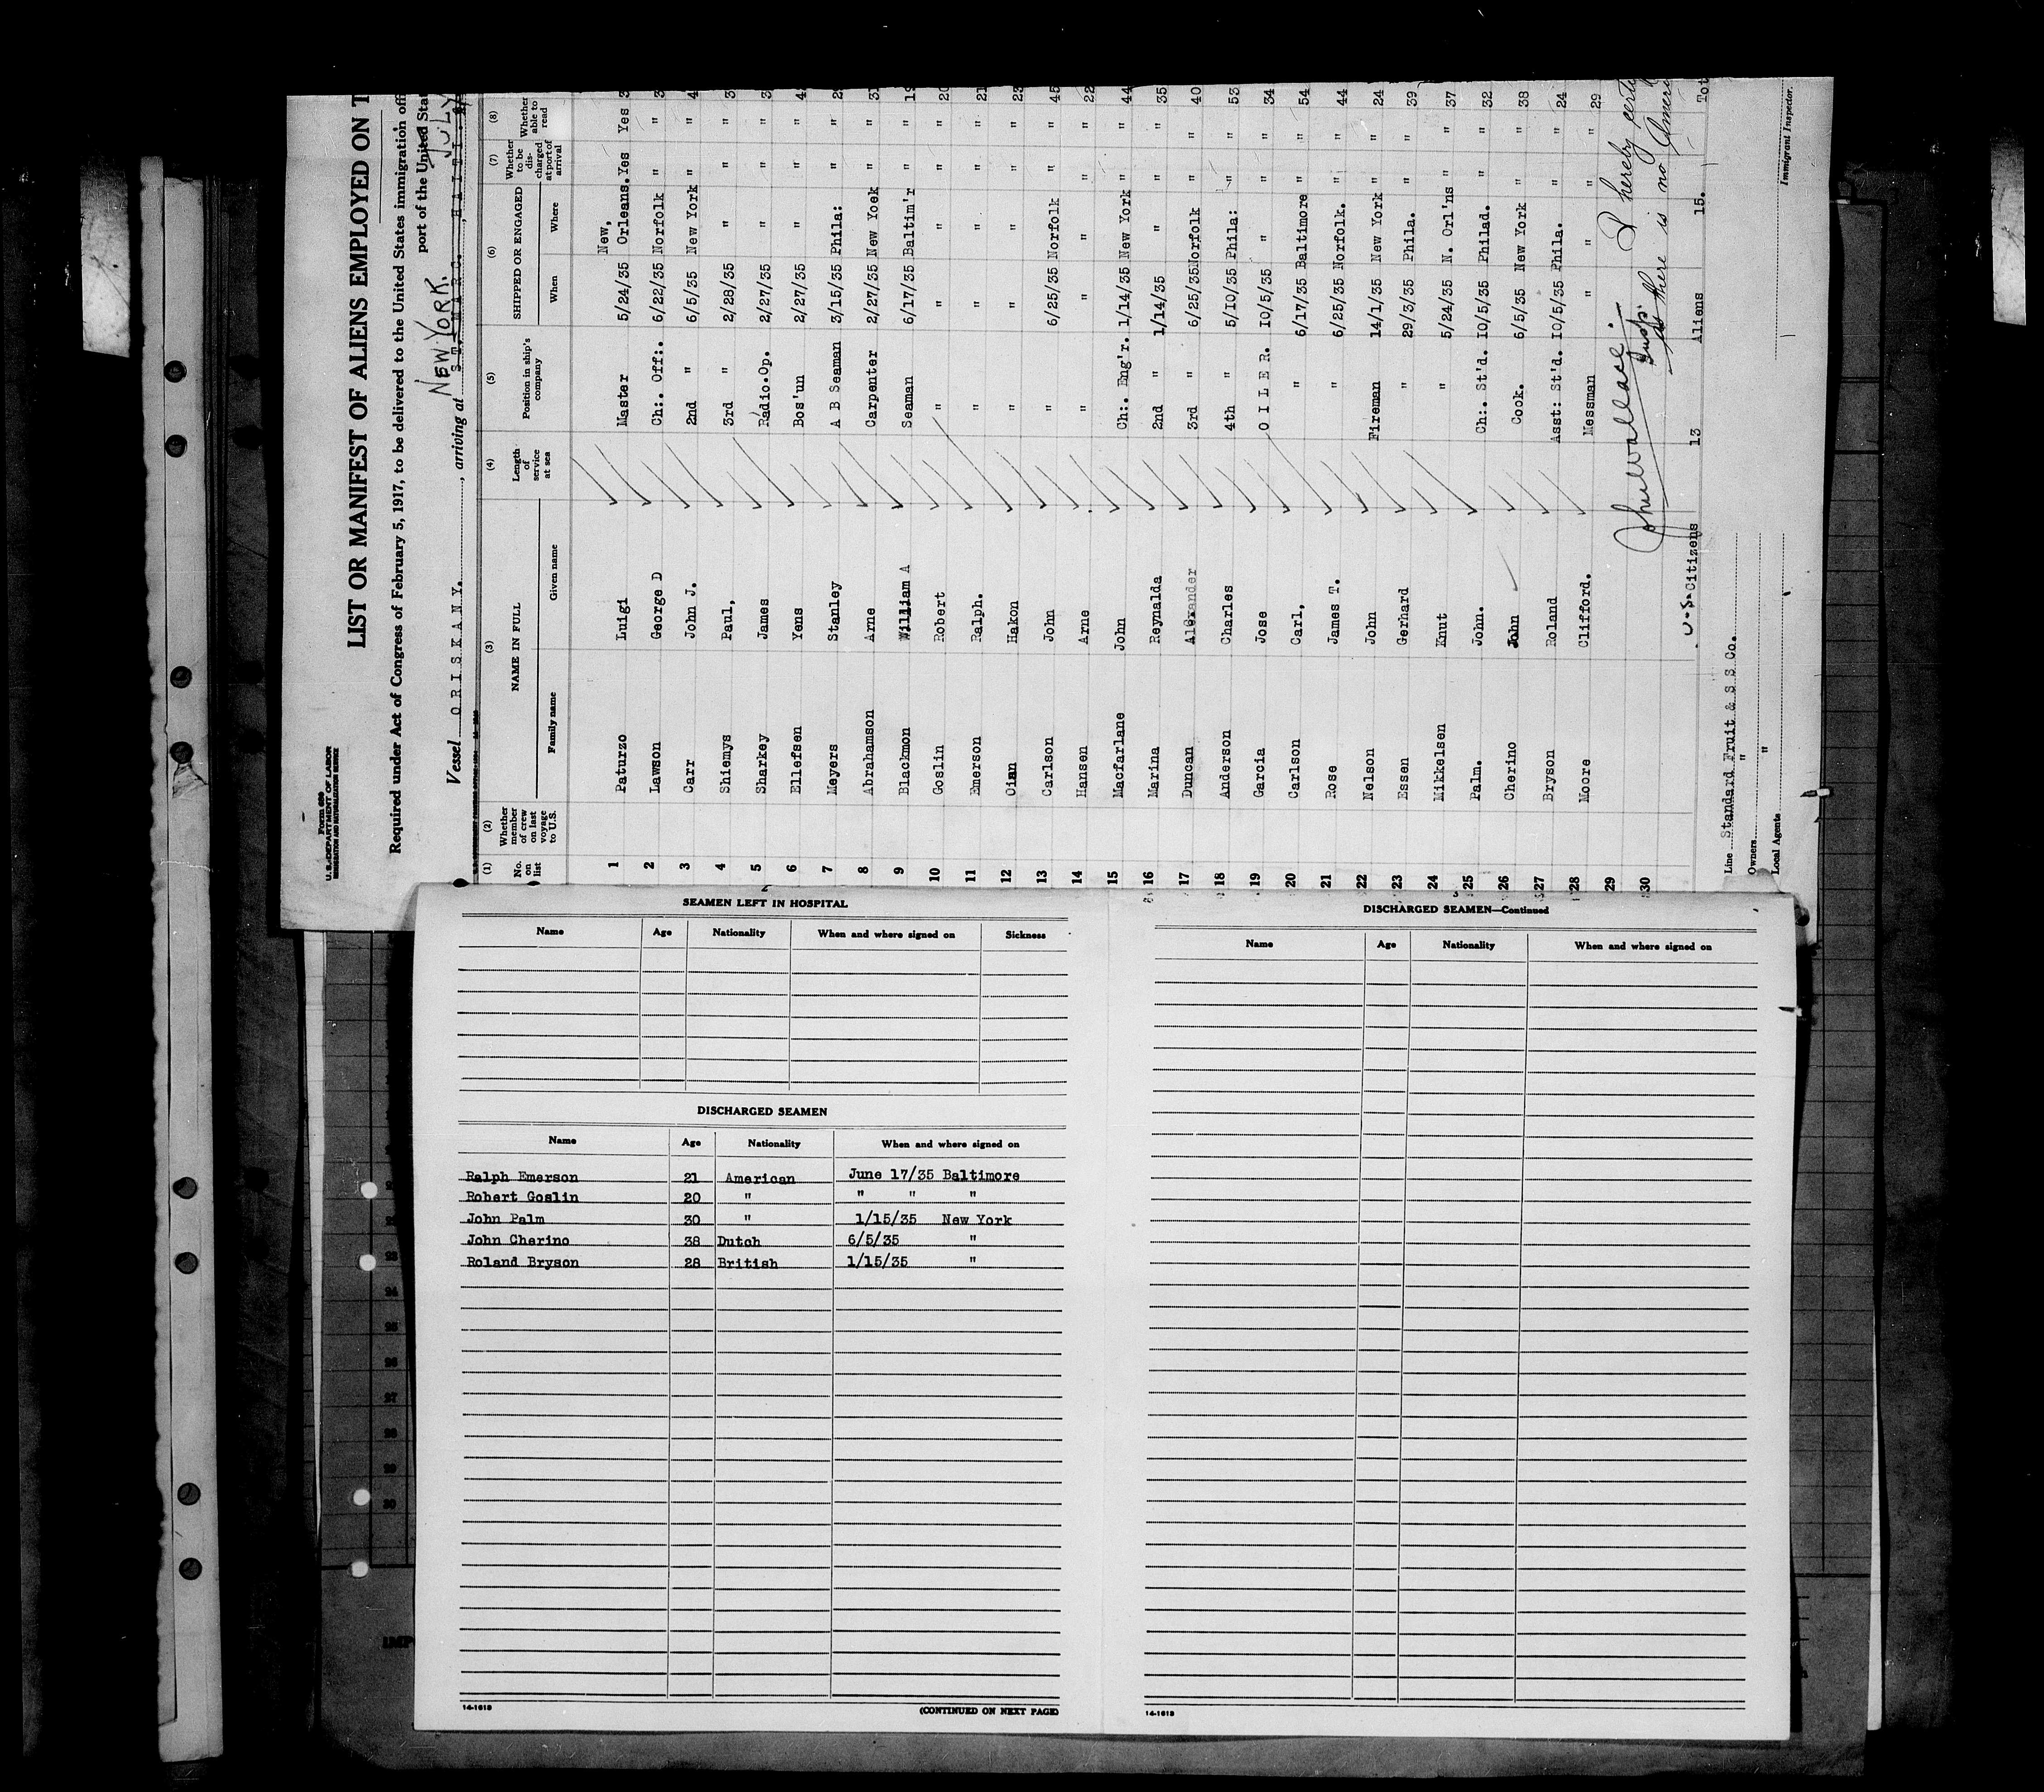 Form 680
U. S. DEPARTMENT OF LABOR
IMMIGRATION AND NATURALIZATION SERVICE
LIST OR MANIFEST OF ALIENS EMPLOYED ON T
Required under Act of Congress of February 5, 1917, to be delivered to the United States immigration offi
port of the United Stat
NEW YORK. JULY
Vessel ORISKANY. , arriving at ST. MARC., HAITI.
(1) (2) (3) (4) (5) (6) (7) (8)
No. on list Whether member of crew on last voyage to U.S. NAME IN FULL Length of service at sea Position in ship's company SHIPPED OR ENGAGED Whether to be discharged at port of arrival Whether able to read
Family name Given name When Where
New,
1 Paturzo Luigi Master 5/24/35 Orleans. Yes Yes 3
2 Lawson George D Ch:. Off:. 6/22/35 Norfolk " " 3
3 Carr John J. 2nd " 6/5/35 New York " " 4
4 Shiemys Paul, 3rd " 2/28/35 " " " 3
5 Sharkey James Radio.Op. 2/27/35 " " " 3
6 Ellefsen Yens Bos'un 2/27/35 " " " 4
7 Meyers Stanley A B Seaman 3/15/35 Phila: " " 2
8 Abrahamson Arne Carpenter 2/27/35 New Yoek " " 31
9 Blackmon William A Seaman 6/17/35 Baltim'r " " 19
10 Goslin Robert " " " " " 20
11 Emerson Ralph. " " " " " 21
12 Hakon " " " " " 23
13 Carlson John " 6/25/35 Norfolk " " 45
14 Hansen Arne " " " " " 22
15 Macfarlane John Ch:. Eng'r. 1/14/35 New York " " 44
16 Marina Reynalda 2nd " 1/14/35 " " " 35
17 Duncan Alexander 3rd " 6/25/35 Norfolk " " 40
18 Anderson Charles 4th " 5/10/35 Phila: " " 53
19 Garcia Jose O I L E R. 10/5/35 " " " 34
20 Carlson Carl, " 6/17/35 Baltimore " " 54
21 Rose James T. " 6/25/35 Norfolk. " " 44
22 Nelson John Fireman 14/1/35 New York " " 24
23 Essen Gerhard " 29/3/35 Phila. " " 39
24 Mikkelsen Knut " 5/24/35 N. Orl'ns " " 37
25 Palm. John. Ch:. St'd. 10/5/35 Philad. " " 32
26 Cherino John Cook. 6/5/35 New York " " 38
27 Bryson Roland Asst: St'd. 10/5/35 Phila. " " 24
28 Moore Clifford. Messman " " " " 29
29
30
John Wallace. I hereby certi
Insp. there is no Ameri
U.S. Citizens 13 Aliens 15. Tot
Line Standard Fruit & S S Co.
Owners "
Local Agents "
Immigrant Inspector.
SEAMEN LEFT IN HOSPITAL
Name Age Nationality When and where signed on Sickness
DISCHARGED SEAMEN
Name Age Nationality When and where signed on
Ralph Emerson 21 American June 17/35 Baltimore
Robert Goslin 20 " " " "
John Palm 30 " 1/15/35 New York
John Cherino 38 Dutch 6/5/35 "
Roland Bryson 28 British 1/15/35 "
14-1613 (CONTINUED ON NEXT PAGE)
DISCHARGED SEAMEN—Continued
Name Age Nationality When and where signed on
14-1613
24
25
26
27
28
29
30